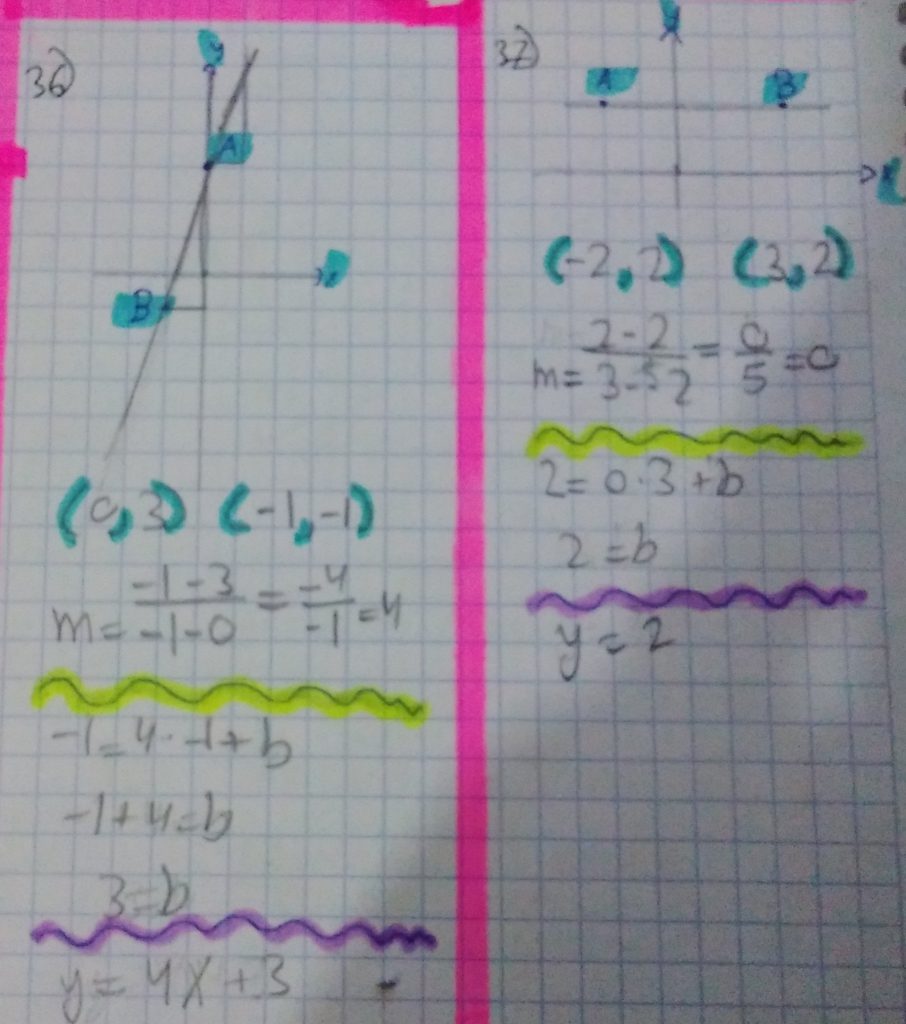 36)
y
A
x
B
(0,3) (-1,-1)
m = -1-3/-1-0 = -4/-1 = 4
-1 = 4·-1+b
-1+4=b
3=b
y = 4x+3
37)
A B
(-2,2) (3,2)
2-2/3-2 = 0/5 = 0
m =
2 = 0·3+b
2 = b
y = 2